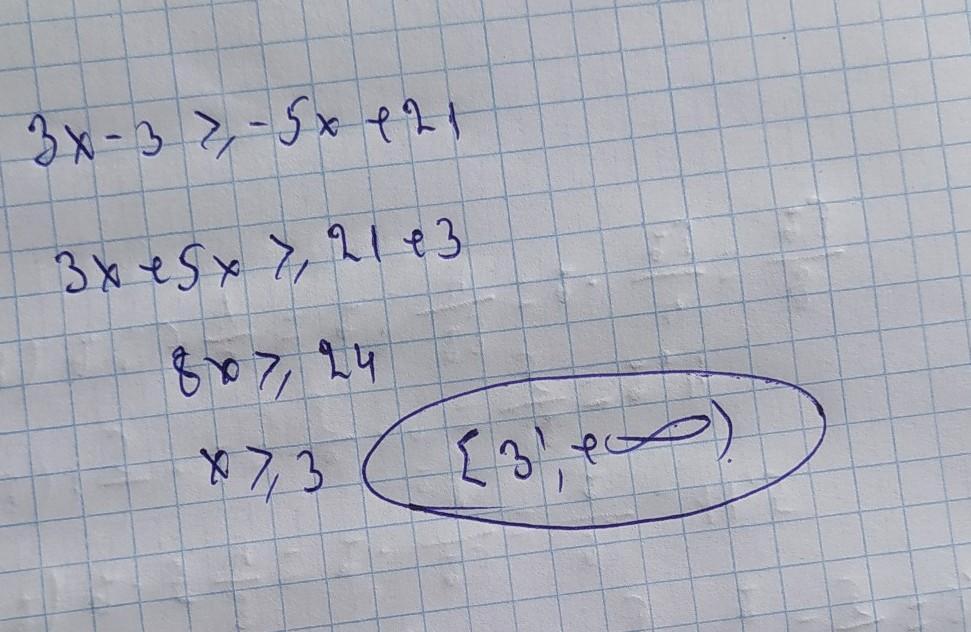 3x - 3 ⩾ -5x + 21
3x + 5x ⩾ 21 + 3
8x ⩾ 24
x ⩾ 3 [3; +∞).